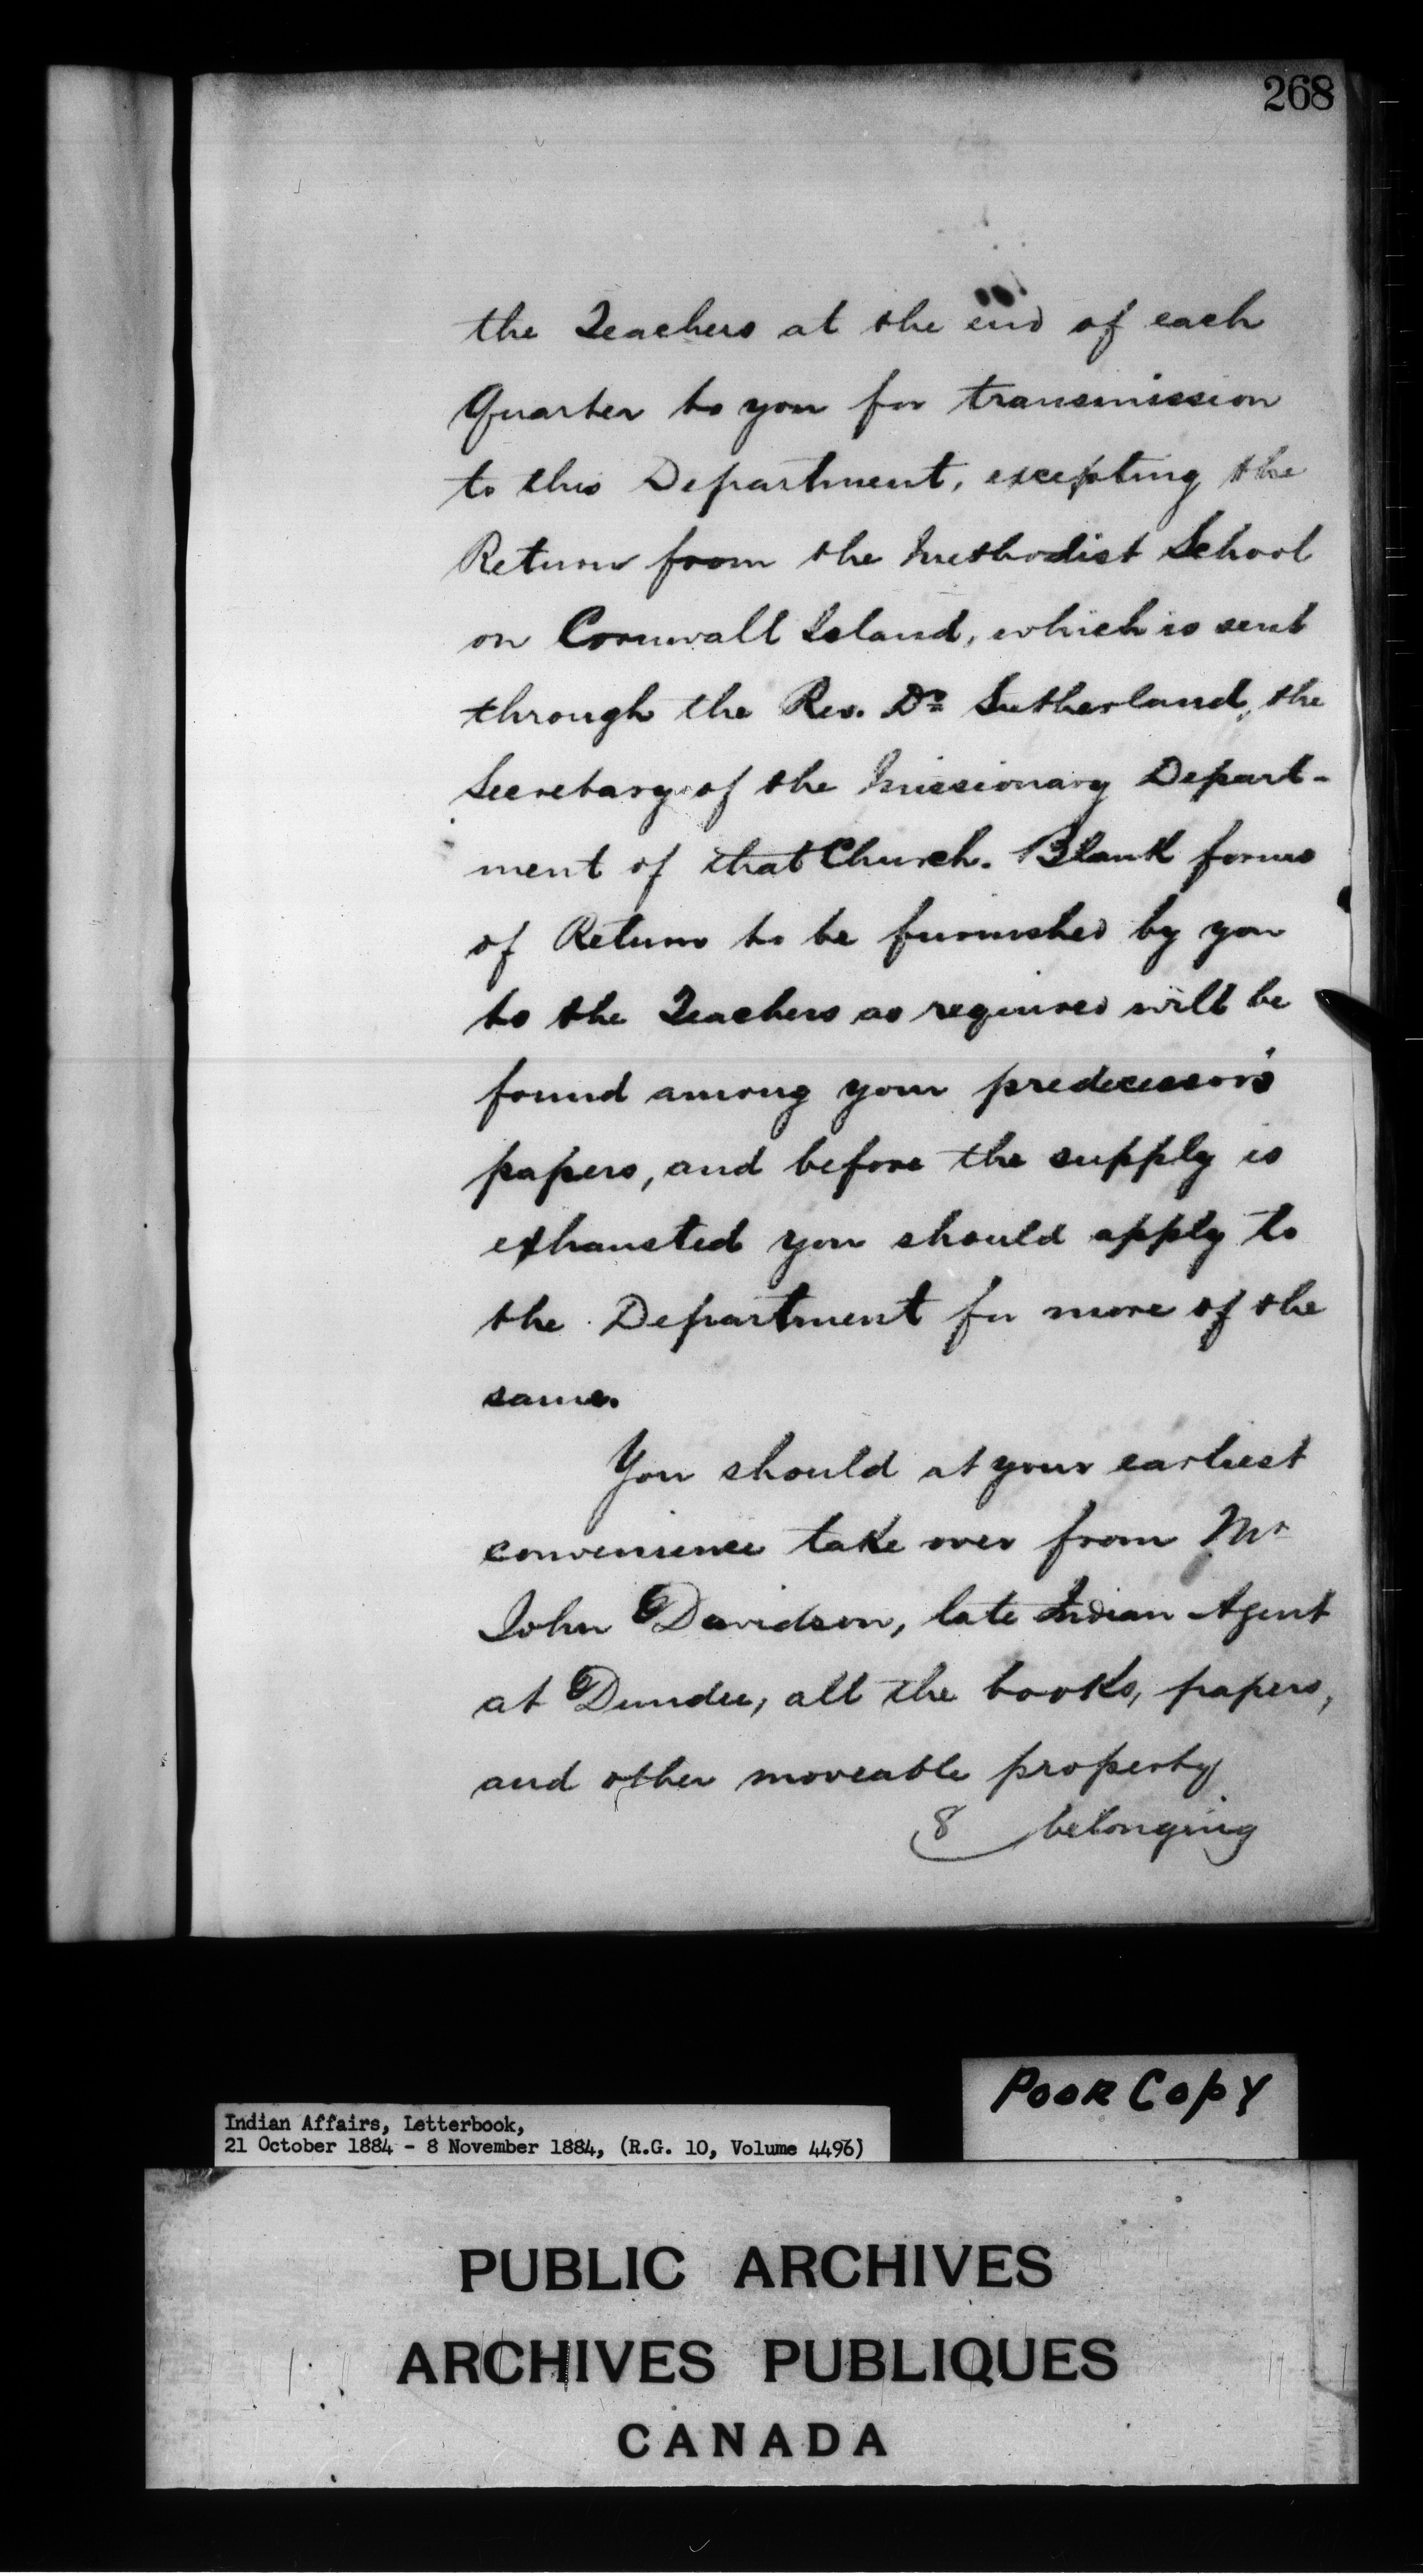 268
the Teachers at the end of each
Quarter to you for transmission
to this Department, excepting the
Return from the Methodist School
on Cornwall Island, which is sent
through the Rev. Dr. Sutherland, the
Secretary of the Missionary Depart-
ment of that Church. Blank forms
of Return to be furnished by you
to the Teachers as required will be
found among your predecessor's
papers, and before the supply is
exhausted you should apply to
the Department for more of the
same.
You should at your earliest
convenience take over from Mr
John Davidson, late Indian Agent
at Dundee, all the books, papers,
and other moveable property
8 belonging
POOR COPY
Indian Affairs, Letterbook,
21 October 1884 - 8 November 1884, (R.G. 10, Volume 4496)
PUBLIC ARCHIVES
ARCHIVES PUBLIQUES
CANADA